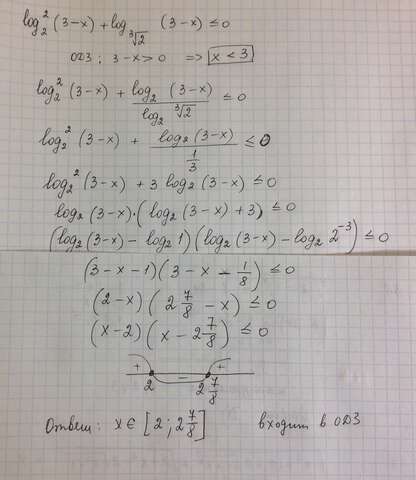 log₂² (3-x) + log_∛2 (3-x) ≤ 0
ОДЗ; 3-x > 0 => x < 3
log₂² (3-x) + log₂ (3-x) / log₂ ∛2 ≤ 0
log₂² (3-x) + log₂(3-x) / (1/3) ≤ 0
log₂² (3-x) + 3 log₂ (3-x) ≤ 0
log₂ (3-x)·(log₂ (3-x) + 3) ≤ 0
(log₂(3-x) - log₂ 1)(log₂ (3-x) - log₂ 2⁻³) ≤ 0
(3-x-1)(3-x - 1/8) ≤ 0
(2-x)(2 7/8 - x) ≤ 0
(x-2)(x - 2 7/8) ≤ 0
+ - +
2 2 7/8
Ответ: x ∈ [2; 2 7/8] входит в ОДЗ